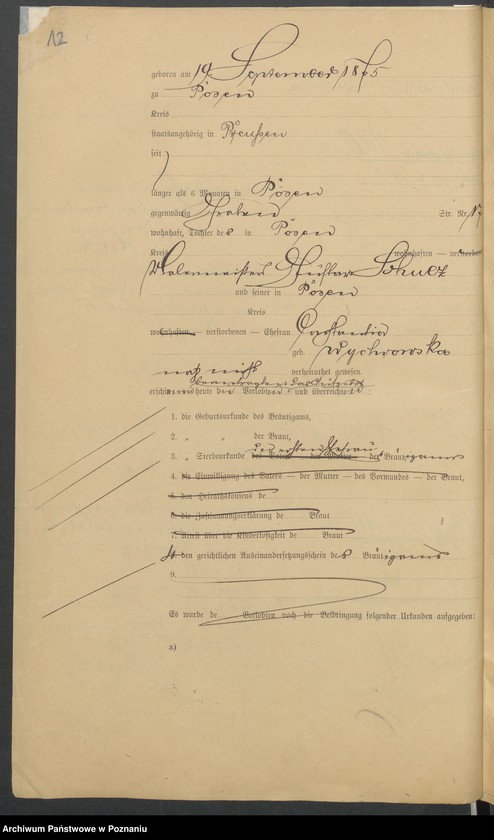 12
geboren am 19. September 1875
zu Posen
Kreis
staatsangehörig in Preußen
seit
länger als 6 Monaten in Posen
gegenwärtig Str. Nr. 17
wohnhaft, Tochter des in Posen
Kreis wohnhaften — verstorbenen
Malermeister Gustav Schulz
und seiner in Posen
Kreis
wohnhaften — verstorbenen — Ehefrau Constantia
geb. Wychrowska
noch nicht verheirathet gewesen
erschienen heute die Verlobten und überreichten
1. die Geburtsurkunde des Bräutigams,
2. " " der Braut,
3. " Sterbeurkunde der ersten Ehefrau des Bräutigams
4. die Einwilligung des Vaters — der Mutter — des Vormundes — der Braut,
5. den Heirathskonsens de
6. die Zustimmungserklärung de Braut
7. Attest über die Kinderlosigkeit de Braut
4. den gerichtlichen Auseinandersetzungsschein des Bräutigams
9.
Es wurde de Verlobten noch die Beibringung folgender Urkunden aufgegeben:
a)
Archiwum Państwowe w Poznaniu